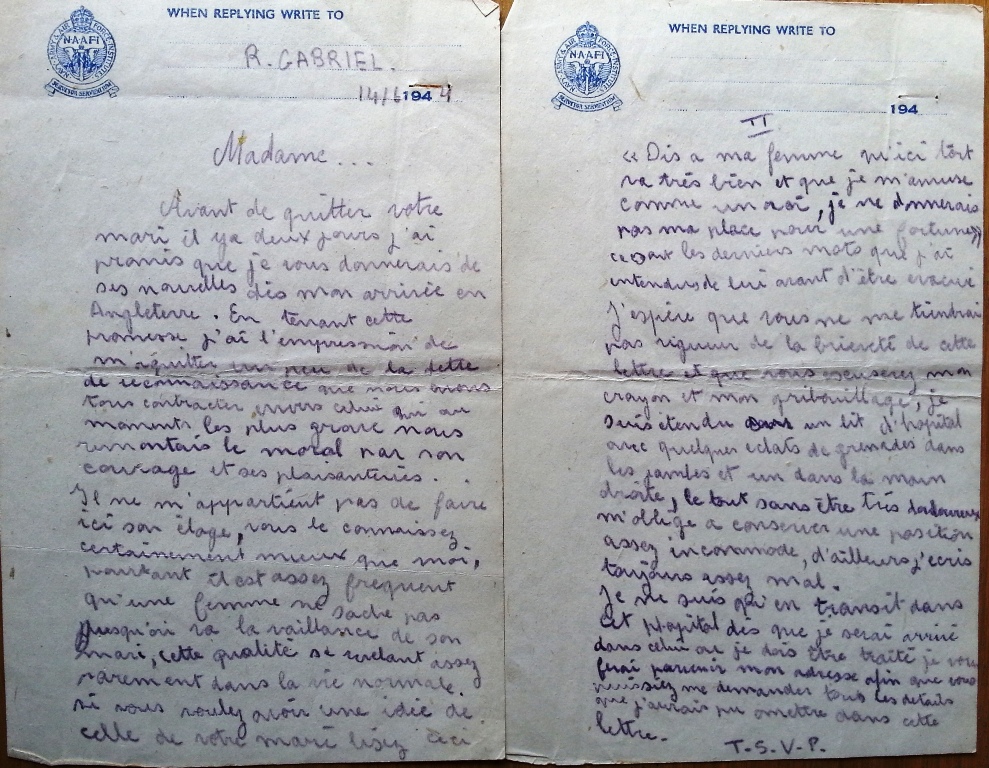 WHEN REPLYING WRITE TO
NAAFI
R. GABRIEL.
14/6 1944
Madame...
Avant de quitter votre
mari il ya deux jours j'ai
promis que je vous donnerais de
ses nouvelles dès mon arrivée en
Angleterre. En tenant cette
promesse j'ai l'empression de
m'aquitter un peu de la dette
de reconnaissance que nous avons
tous contracter envers celui qui au
moments les plus grave nous
remontais le moral par son
courage et ses plaisanteries.
Il ne m'appartient pas de faire
ici son éloge, vous le connaissez
certainement mieux que moi,
pourtant il est assez frequent
qu'une femme ne sache pas
jusqu'où va la vaillance de son
mari, cette qualité se revelant assez
rarement dans la vie normale.
si vous voulez avoir une idée de
celle de votre mari lisez ceci
WHEN REPLYING WRITE TO
NAAFI
194
II
« Dis a ma femme qu'ici tout
va très bien et que je m'amuse
comme un roi, je ne donnerais
pas ma place pour une fortune»
ce sont les derniers mots que j'ai
entendus de lui avant d'être évacué
J'espère que vous ne me tiendrai
pas rigueur de la brieveté de cette
lettre et que vous escuserez mon
crayon et mon gribouillage, je
suis étendu dans un lit d'hopital
avec quelques eclats de grenades dans
les jambes et un dans la main
droite, le tout sans être très douloureux
m'oblige a conserver une position
assez incommode, d'ailleurs j'ecris
toujours assez mal.
Je ne suis qu'en transit dans
cet hopital dès que je serai arrivé
dans celui ou je dois être traité je vous
ferai parvenir mon adresse afin que vous
puissiez me demander tous les details
que j'aurais pu omettre dans cette
lettre.
T.S.V.P.